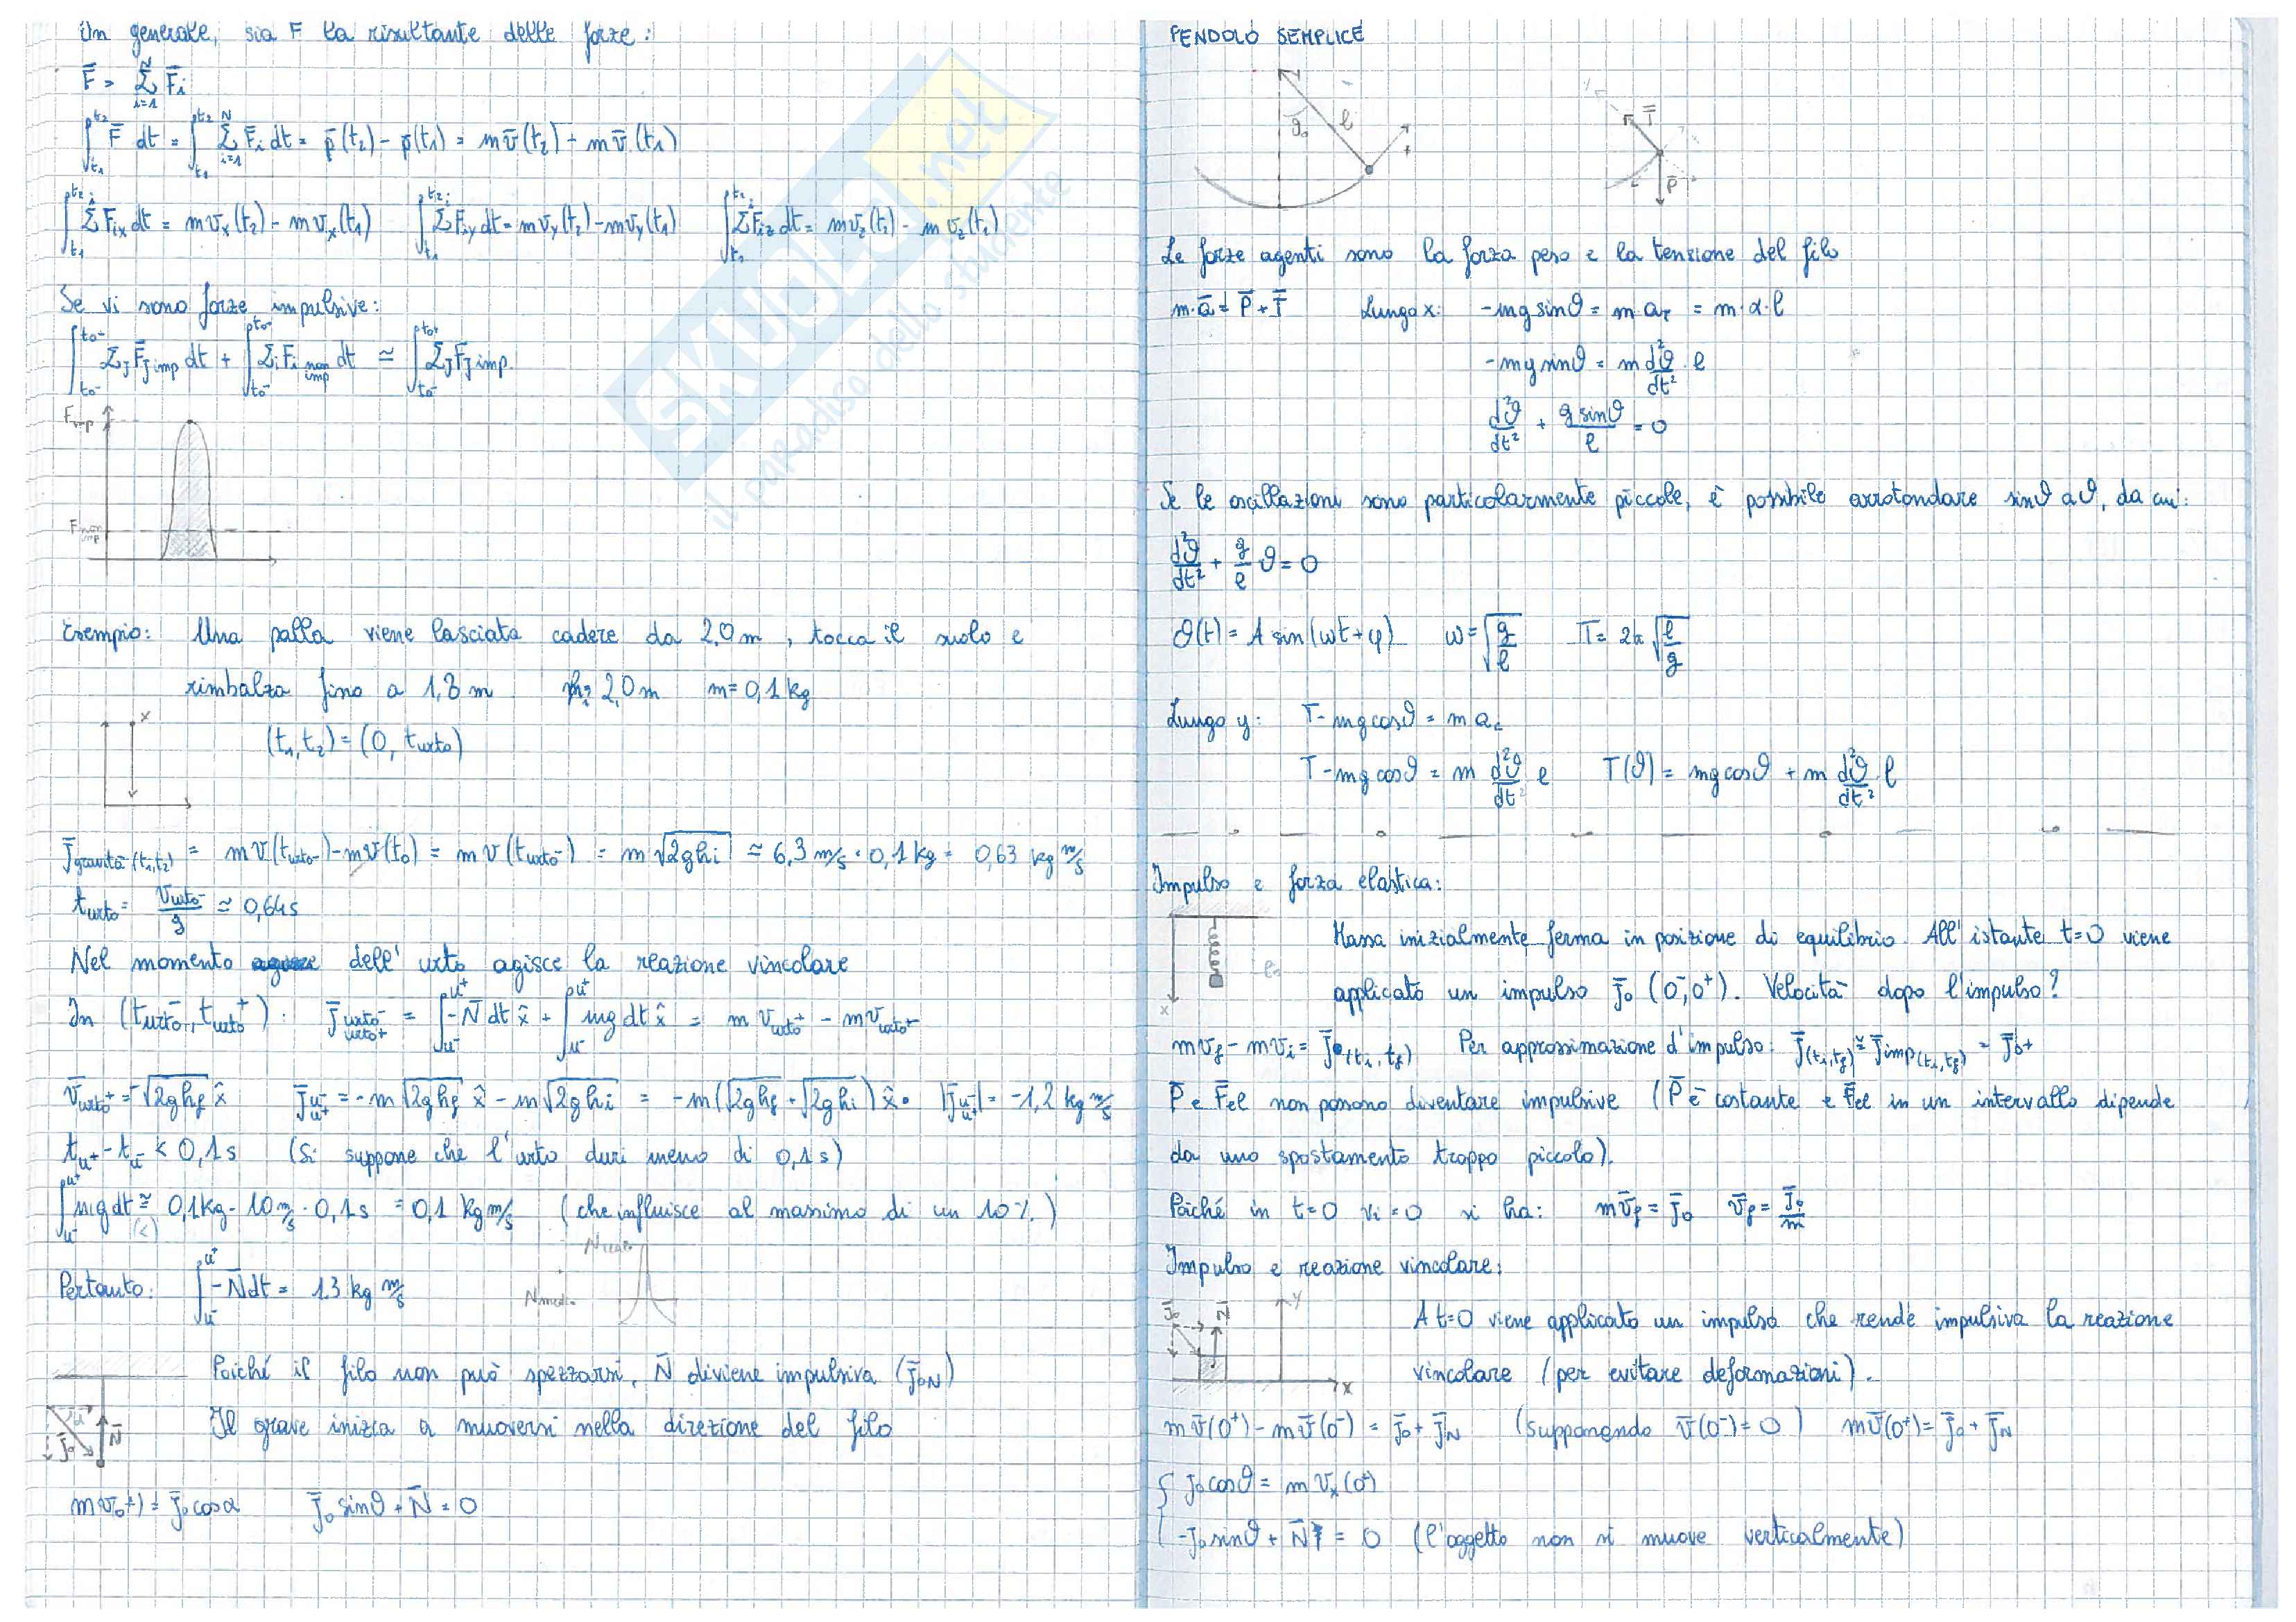 In generale, sia F la risultante delle forze:
F̄ = Σ_{i=1}^{N} F̄ᵢ
∫_{t₁}^{t₂} F̄ dt = ∫_{t₁}^{t₂} Σ_{i=1}^{N} F̄ᵢ dt = p̄(t₂) - p̄(t₁) = m v̄(t₂) - m v̄(t₁)
∫_{t₁}^{t₂} Σ Fᵢₓ dt = m vₓ(t₂) - m vₓ(t₁) ∫_{t₁}^{t₂} Σ F_{iy} dt = m v_y(t₂) - m v_y(t₁) ∫_{t₁}^{t₂} Σ F_{iz} dt = m v_z(t₂) - m v_z(t₁)
Se vi sono forze impulsive:
∫_{t₀⁻}^{t₀⁺} Σ_J F̄_{J imp} dt + ∫_{t₀⁻}^{t₀⁺} Σᵢ F̄ᵢ non imp dt ≃ ∫_{t₀⁻}^{t₀⁺} Σ_J F̄_{J imp}.
F imp
F non imp
Esempio: Una palla viene lasciata cadere da 2,0 m, tocca il suolo e
rimbalza fino a 1,8 m hᵢ = 2,0 m m = 0,1 kg
x
(t₁, t₂) = (0, t urto)
J̄ gravità (t₁,t₂) = m v(t urto⁻) - m v(t₀) = m v(t urto⁻) = m √(2ghi) ≃ 6,3 m/s · 0,1 kg = 0,63 kg m/s
t urto = v urto⁻ / g ≃ 0,64 s
Nel momento dell'urto agisce la reazione vincolare
In (t urto⁻, t urto⁺): J̄ urto⁻ urto⁺ = ∫_{u⁻}^{u⁺} -N̄ dt x̂ + ∫_{u⁻}^{u⁺} mg dt x̂ = m v urto⁺ - m v urto⁻
v̄ urto⁺ = -√(2ghf) x̂ J̄ u⁻ u⁺ = -m √(2ghf) x̂ - m √(2ghi) = -m (√(2ghf) + √(2ghi)) x̂ |J̄ u⁻ u⁺| = -1,2 kg m/s
t u⁺ - t u⁻ < 0,1 s (Si suppone che l'urto duri meno di 0,1 s)
∫_{u⁻}^{u⁺} mg dt ≅ 0,1 kg · 10 m/s · 0,1 s = 0,1 kg m/s (che influisce al massimo di un 10%)
(<)
Pertanto: ∫_{u⁻}^{u⁺} -N̄ dt = 1,3 kg m/s
N medio
Poiché il filo non può spezzarsi, N̄ diviene impulsiva (J̄₀N)
Il grave inizia a muoversi nella direzione del filo
J̄₀ N̄
m v(0⁺) = J̄₀ cos α J̄₀ sin ϑ + N̄ = 0
PENDOLO SEMPLICE
ϑ₀ l
T̄ P̄
Le forze agenti sono la forza peso e la tensione del filo
m·ā = P̄ + T̄ Lungo x: -mg sin ϑ = m a_T = m·α·l
-mg sin ϑ = m d²ϑ/dt² · l
d²ϑ/dt² + g sin ϑ / l = 0
Se le oscillazioni sono particolarmente piccole, è possibile arrotondare sin ϑ a ϑ, da cui:
d²ϑ/dt² + g/l ϑ = 0
ϑ(t) = A sin(ωt + φ) ω = √(g/l) T = 2π √(l/g)
Lungo y: T - mg cos ϑ = m a_c
T - mg cos ϑ = m d²ϑ/dt² l T(ϑ) = mg cos ϑ + m d²ϑ/dt² l
Impulso e forza elastica:
x
Massa inizialmente ferma in posizione di equilibrio. All'istante t=0 viene
applicato un impulso J̄₀ (0⁻, 0⁺). Velocità dopo l'impulso?
m v_f - m vᵢ = J̄ (tᵢ, t_f) Per approssimazione d'impulso: J̄ (tᵢ,t_f) ≅ J̄ imp (tᵢ,t_f) = J̄₀⁺
P̄ e F̄el non possono diventare impulsive (P̄ è costante e F̄el in un intervallo dipende
da uno spostamento troppo piccolo).
Poiché in t=0 vᵢ = 0 si ha: m v̄_f = J̄₀ v̄_f = J̄₀/m
Impulso e reazione vincolare:
J̄₀ N̄ y x
A t=0 viene applicato un impulso che rende impulsiva la reazione
vincolare (per evitare deformazioni).
m v̄(0⁺) - m v̄(0⁻) = J̄₀ + J̄_N (supponendo v̄(0⁻) = 0) m v̄(0⁺) = J̄₀ + J̄_N
{ J₀ cos ϑ = m vₓ(0⁺)
-J₀ sin ϑ + N̄ = 0 (l'oggetto non si muove verticalmente)
SKUOLA.net
il paradiso dello studente